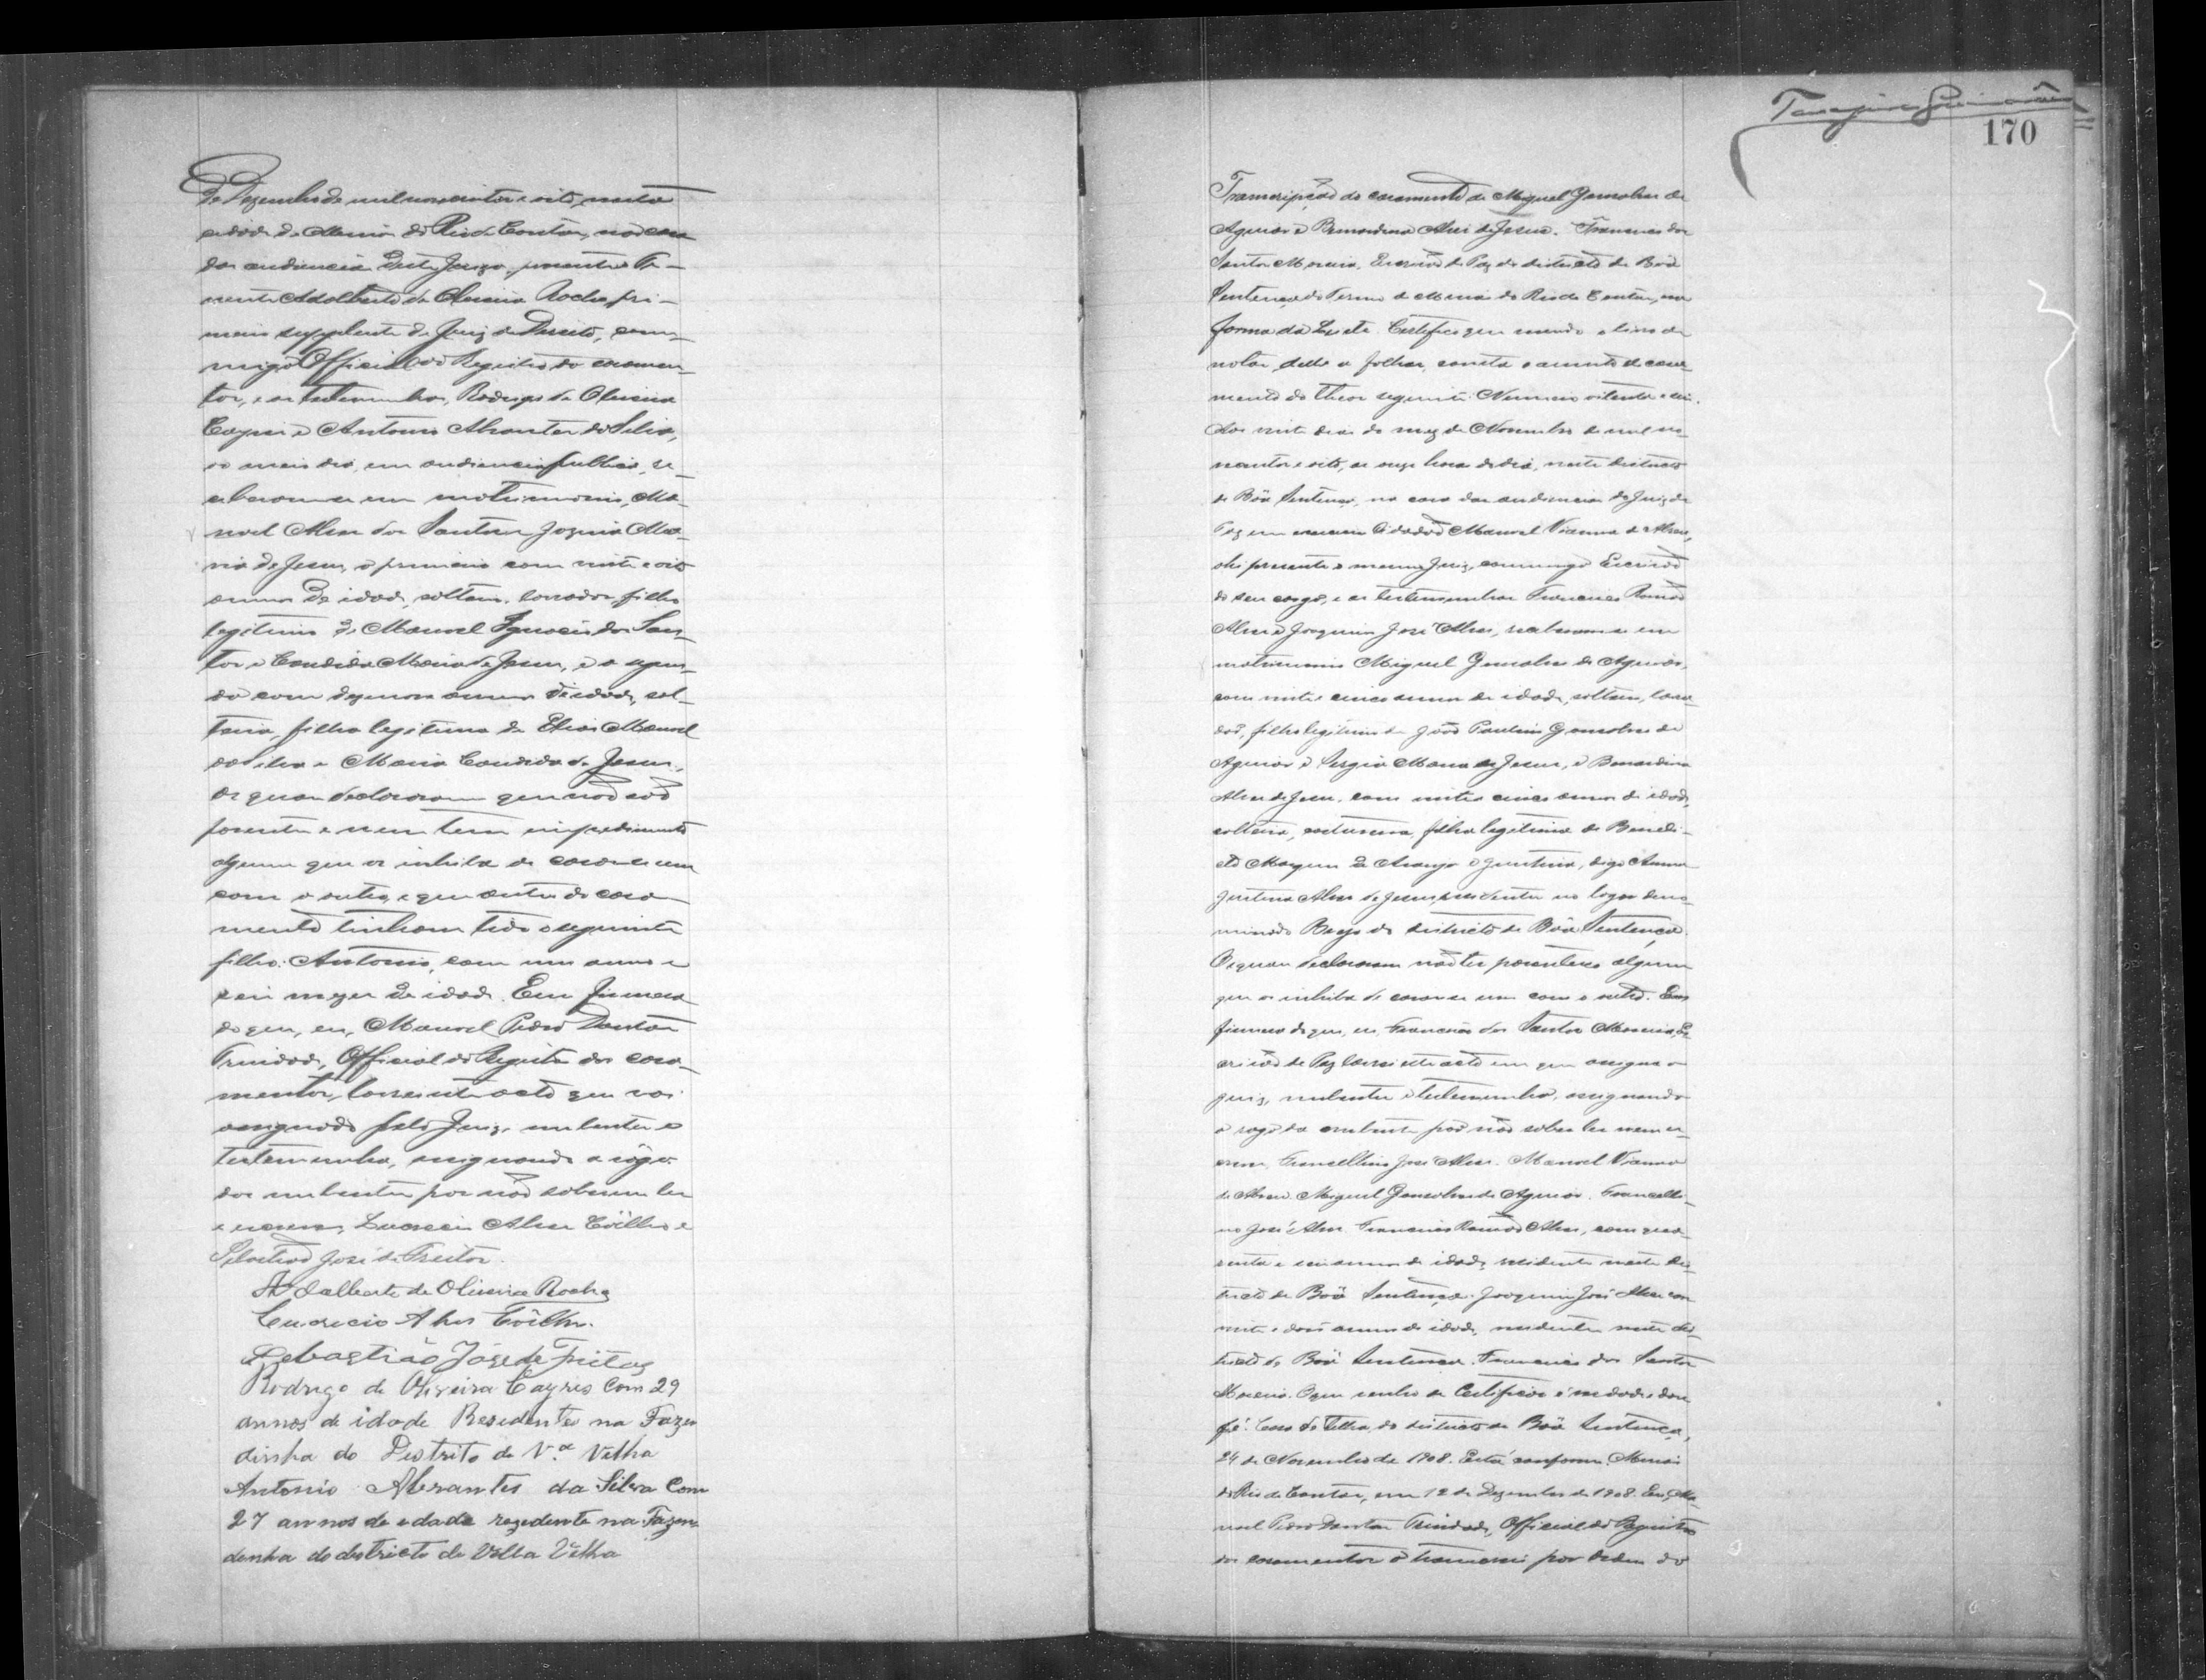 de Dezembro de mil novecentos e oito, nesta
cidade de Minas do Rio de Contas, na casa
das audiencias deste Juizo, presente o Te-
nente Adalberto de Oliveira Rocha, pri-
meiro supplente do Juiz de Direito, com-
migo Official do Registro do casamen-
tos, e as testemunhas, Rodrigo de Oliveira
Cayres e Antonio Abrantes da Silva,
ao meio dia, em audiencia publica, re-
ceberam-se em matrimonio, Ma-
noel Alves dos Santos e Jozina Ma-
ria de Jesus, o primeiro com vinte e oito
annos de idade, solteiro, lavrador, filho
legitimo de Manoel Ignacio dos San-
tos e Candida Maria de Jesus, e a segun-
da com dezenove annos de idade, sol-
teira, filha legitima de Elias Manoel
da Silva e Maria Candida de Jesus,
os quaes declararam que não são
parentes e nem tem impedimento
algum que os inhiba de casar-se um
com o outro, e que antes do casa-
mento tinham tido o seguinte
filho: Antonio, com um anno e
seis mezes de idade. Em firmeza
do que, eu, Manoel Pedro Dantas
Trindade, Official do Registro dos casa-
mentos, lavrei este acto que vai
assignado pelo Juiz, nubentes e
testemunhas, assignando a rogo
dos nubentes por não saberem ler
e escrever, Lucrecio Alves Coêlho e
Sebastião José de Freitas.
Adalberto de Oliveira Rocha
Lucrecio Alves Coêlho.
Sebastião José de Freitas
Rodrigo de Oliveira Cayres Com 29
annos de idade Residentes na Fazen
dinha do Distrito de V.ª Velha
Antonio Abrantes da Silva Com
27 annos de edade rezedente na Fazen
denha do destricto de Villa Velha
170
Transcripção do casamento de Miguel Gonsalves de
Aguiar e Bernardina Alves de Jesus. Francisco dos
Santos Moreira, Escrivão de Paz do districto de Bôa
Sentença do Termo de Minas do Rio de Contas, na
forma da Lei etc. Certifico que revendo o livro de
notas, delle a folhas, consta o assento de casa-
mento do theor seguinte: Numero oitenta e seis.
Aos vinte dias do mez de Novembro de mil no-
vecentos e oito, as onze horas do dia, neste districto
de Bôa Sentença, na casa das audiencias do Juiz de
Paz em exercicio Cidadão Manoel Vianna de Abreu,
ahi presente o mesmo Juiz, commigo Escrivão
do seu cargo, e as testemunhas Francisco Ramos
Alves e Joaquim José Alves, receberam-se em
matrimonio Miguel Gonsalves de Aguiar,
com vinte e cinco annos de idade, solteiro, lavra-
dor, filho legitimo de João Paulino Gonsalves de
Aguiar e Sergia Maria de Jesus, e Bernardina
Alves de Jesus, com vinte e cinco annos de idade,
solteira, costureira, filha legitima de Benedi-
cto Marques de Araujo e Justina, digo Anna
Justina Alves de Jesus, residentes no logar deno-
minado Brejo do districto de Bôa Sentença.
Os quaes declararam não ter parentesco algum
que os inhiba de casar-se um com o outro. Em
firmeza do que, eu, Francisco dos Santos Moreira, Es-
crivão de Paz lavrei este acto em que assigna o
juiz, nubentes e testemunhas, assignando
a rogo da nubente por não saber ler nem es-
crever, Francellino José Alves. Manoel Vianna
de Abreu. Miguel Gonsalves de Aguiar. Francelli-
no José Alves. Francisco Ramos Alves, com qua-
renta e seis annos de idade, residente neste dis-
tricto de Bôa Sentença. Joaquim José Alves com
vinte e dois annos de idade, residente neste dis-
tricto de Bôa Sentença. Francisco dos Santos
Moreira. O que tenho de Certificar é verdade e dou
fé. do districto de Bôa Sentença,
24 de Novembro de 1908. Está conforme. Minas
do Rio de Contas, em 12 de Dezembro de 1908. Eu, Ma-
noel Pedro Dantas Trindade, Official do Registro
dos casamentos o transcrevi por ordem do